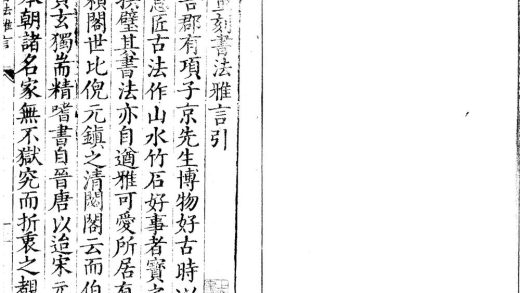 刻書法雅言引
郡有項子京先生博物好古時以
匠古法作山水竹石好事者寶之
撲璧其書法亦自遒雅可愛所居有
閣世比倪元鎮之清閟閣云而伯
玄獨耑精嗜書自晉唐以迨宋元
朝諸名家無不獄究而折衷之
法雅言